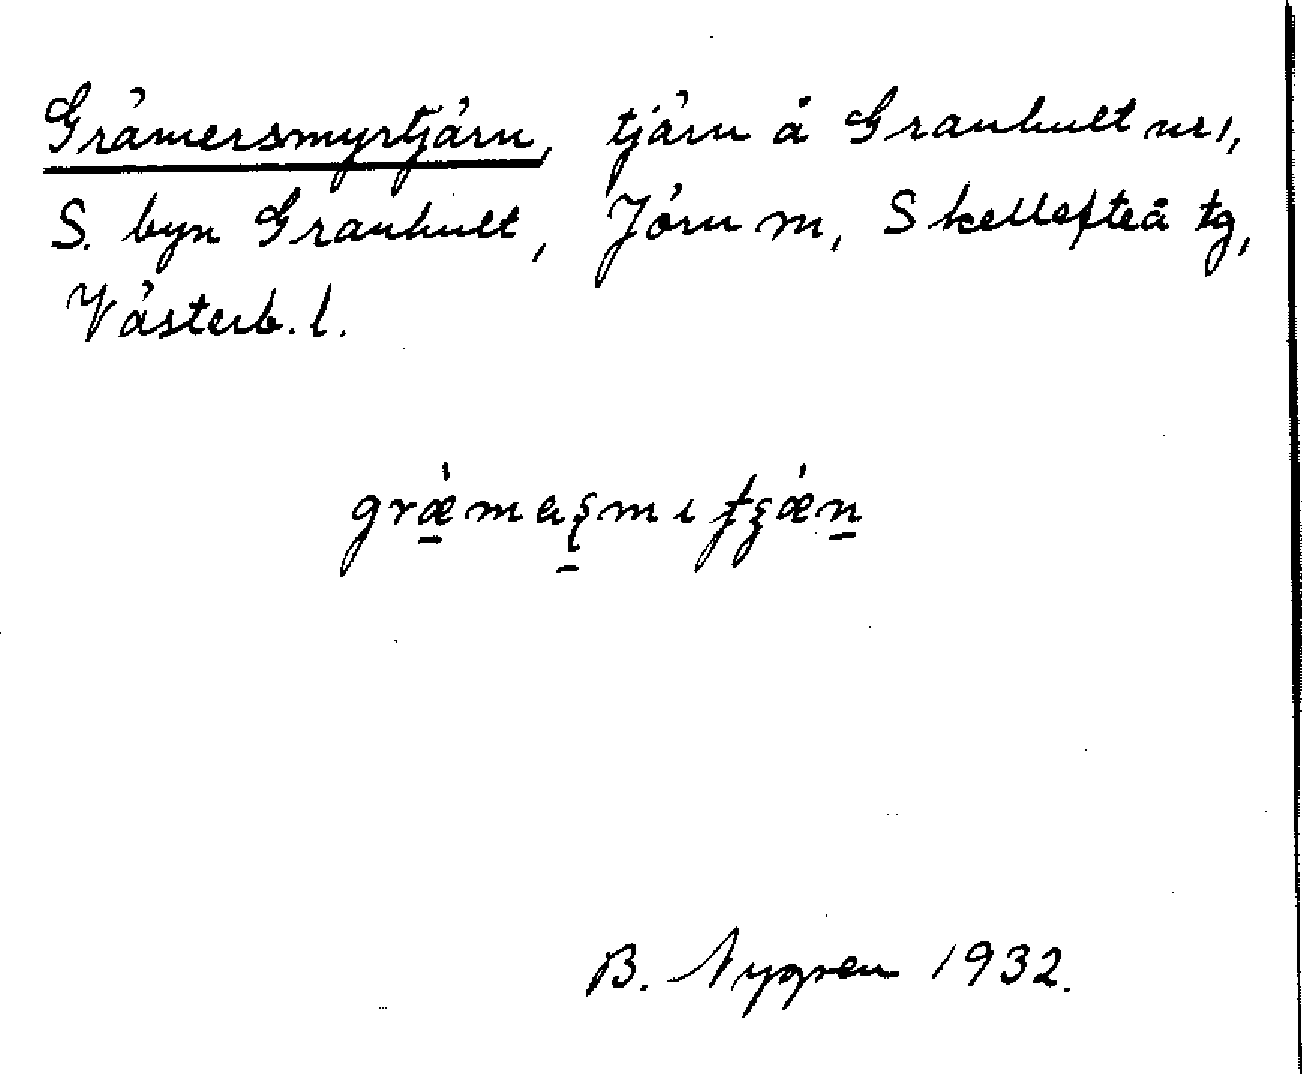 Grämersmyrtjärn, tjärn å Granhult nr 1,
S. byn Granhult, Jörn m, Skellefteå tg,
Västerb. l.
B. Nygren 1932.